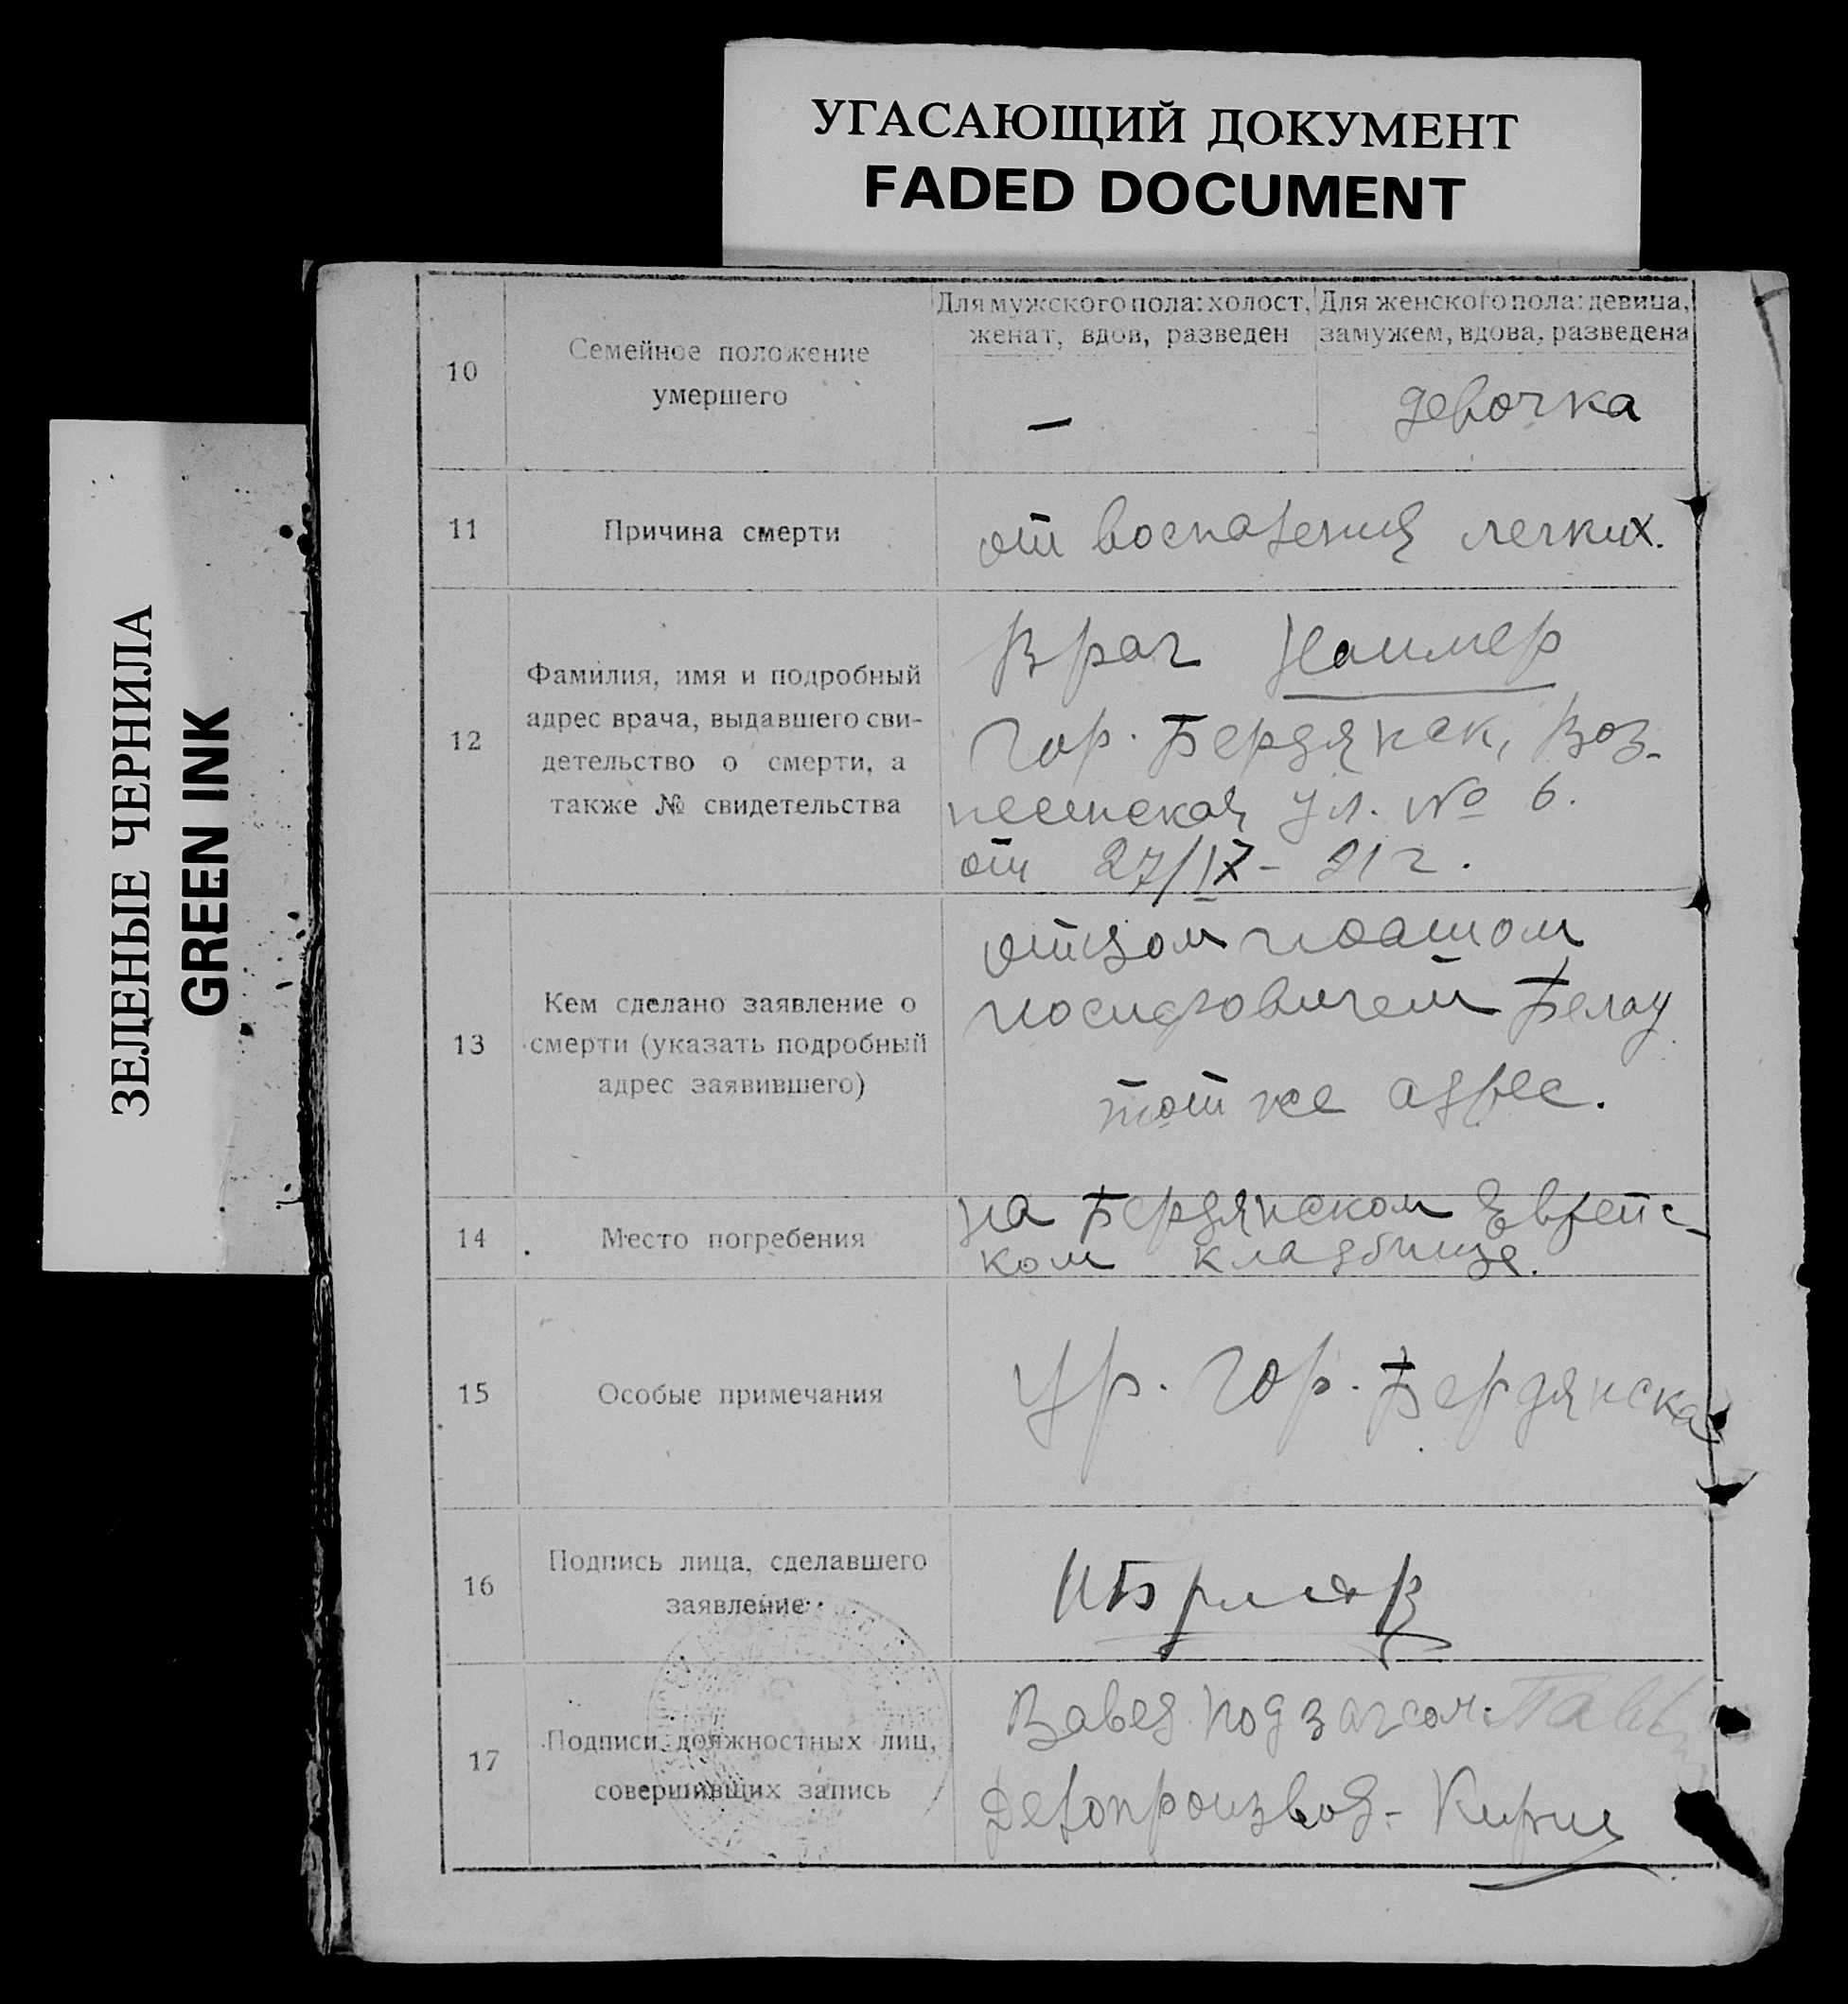 УГАСАЮЩИЙ ДОКУМЕНТ
FADED DOCUMENT
ЗЕЛЕНЫЕ ЧЕРНИЛА
GREEN INK
10
Семейное положение
умершего
Для мужского пола: холост,
женат, вдов, разведен
—
Для женского пола: девица,
замужем, вдова, разведена
девочка
11
Причина смерти
от воспаления легких.
12
Фамилия, имя и подробный
адрес врача, выдавшего сви-
детельство о смерти, а
также № свидетельства
Врач
Гор. Бердянск, Воз-
несенская ул. № 6.
от 27/IX - 21 г.
13
Кем сделано заявление о
смерти (указать подробный
адрес заявившего)
отцом
Иосифовичем
тот же адрес.
14
Место погребения
на Бердянском Еврейс-
ком кладбище.
15
Особые примечания
Ур. Гор. Бердянска
16
Подпись лица, сделавшего
заявление
17
Подписи должностных лиц,
совершивших запись
Завед. подзагсом
Делопроизвод -